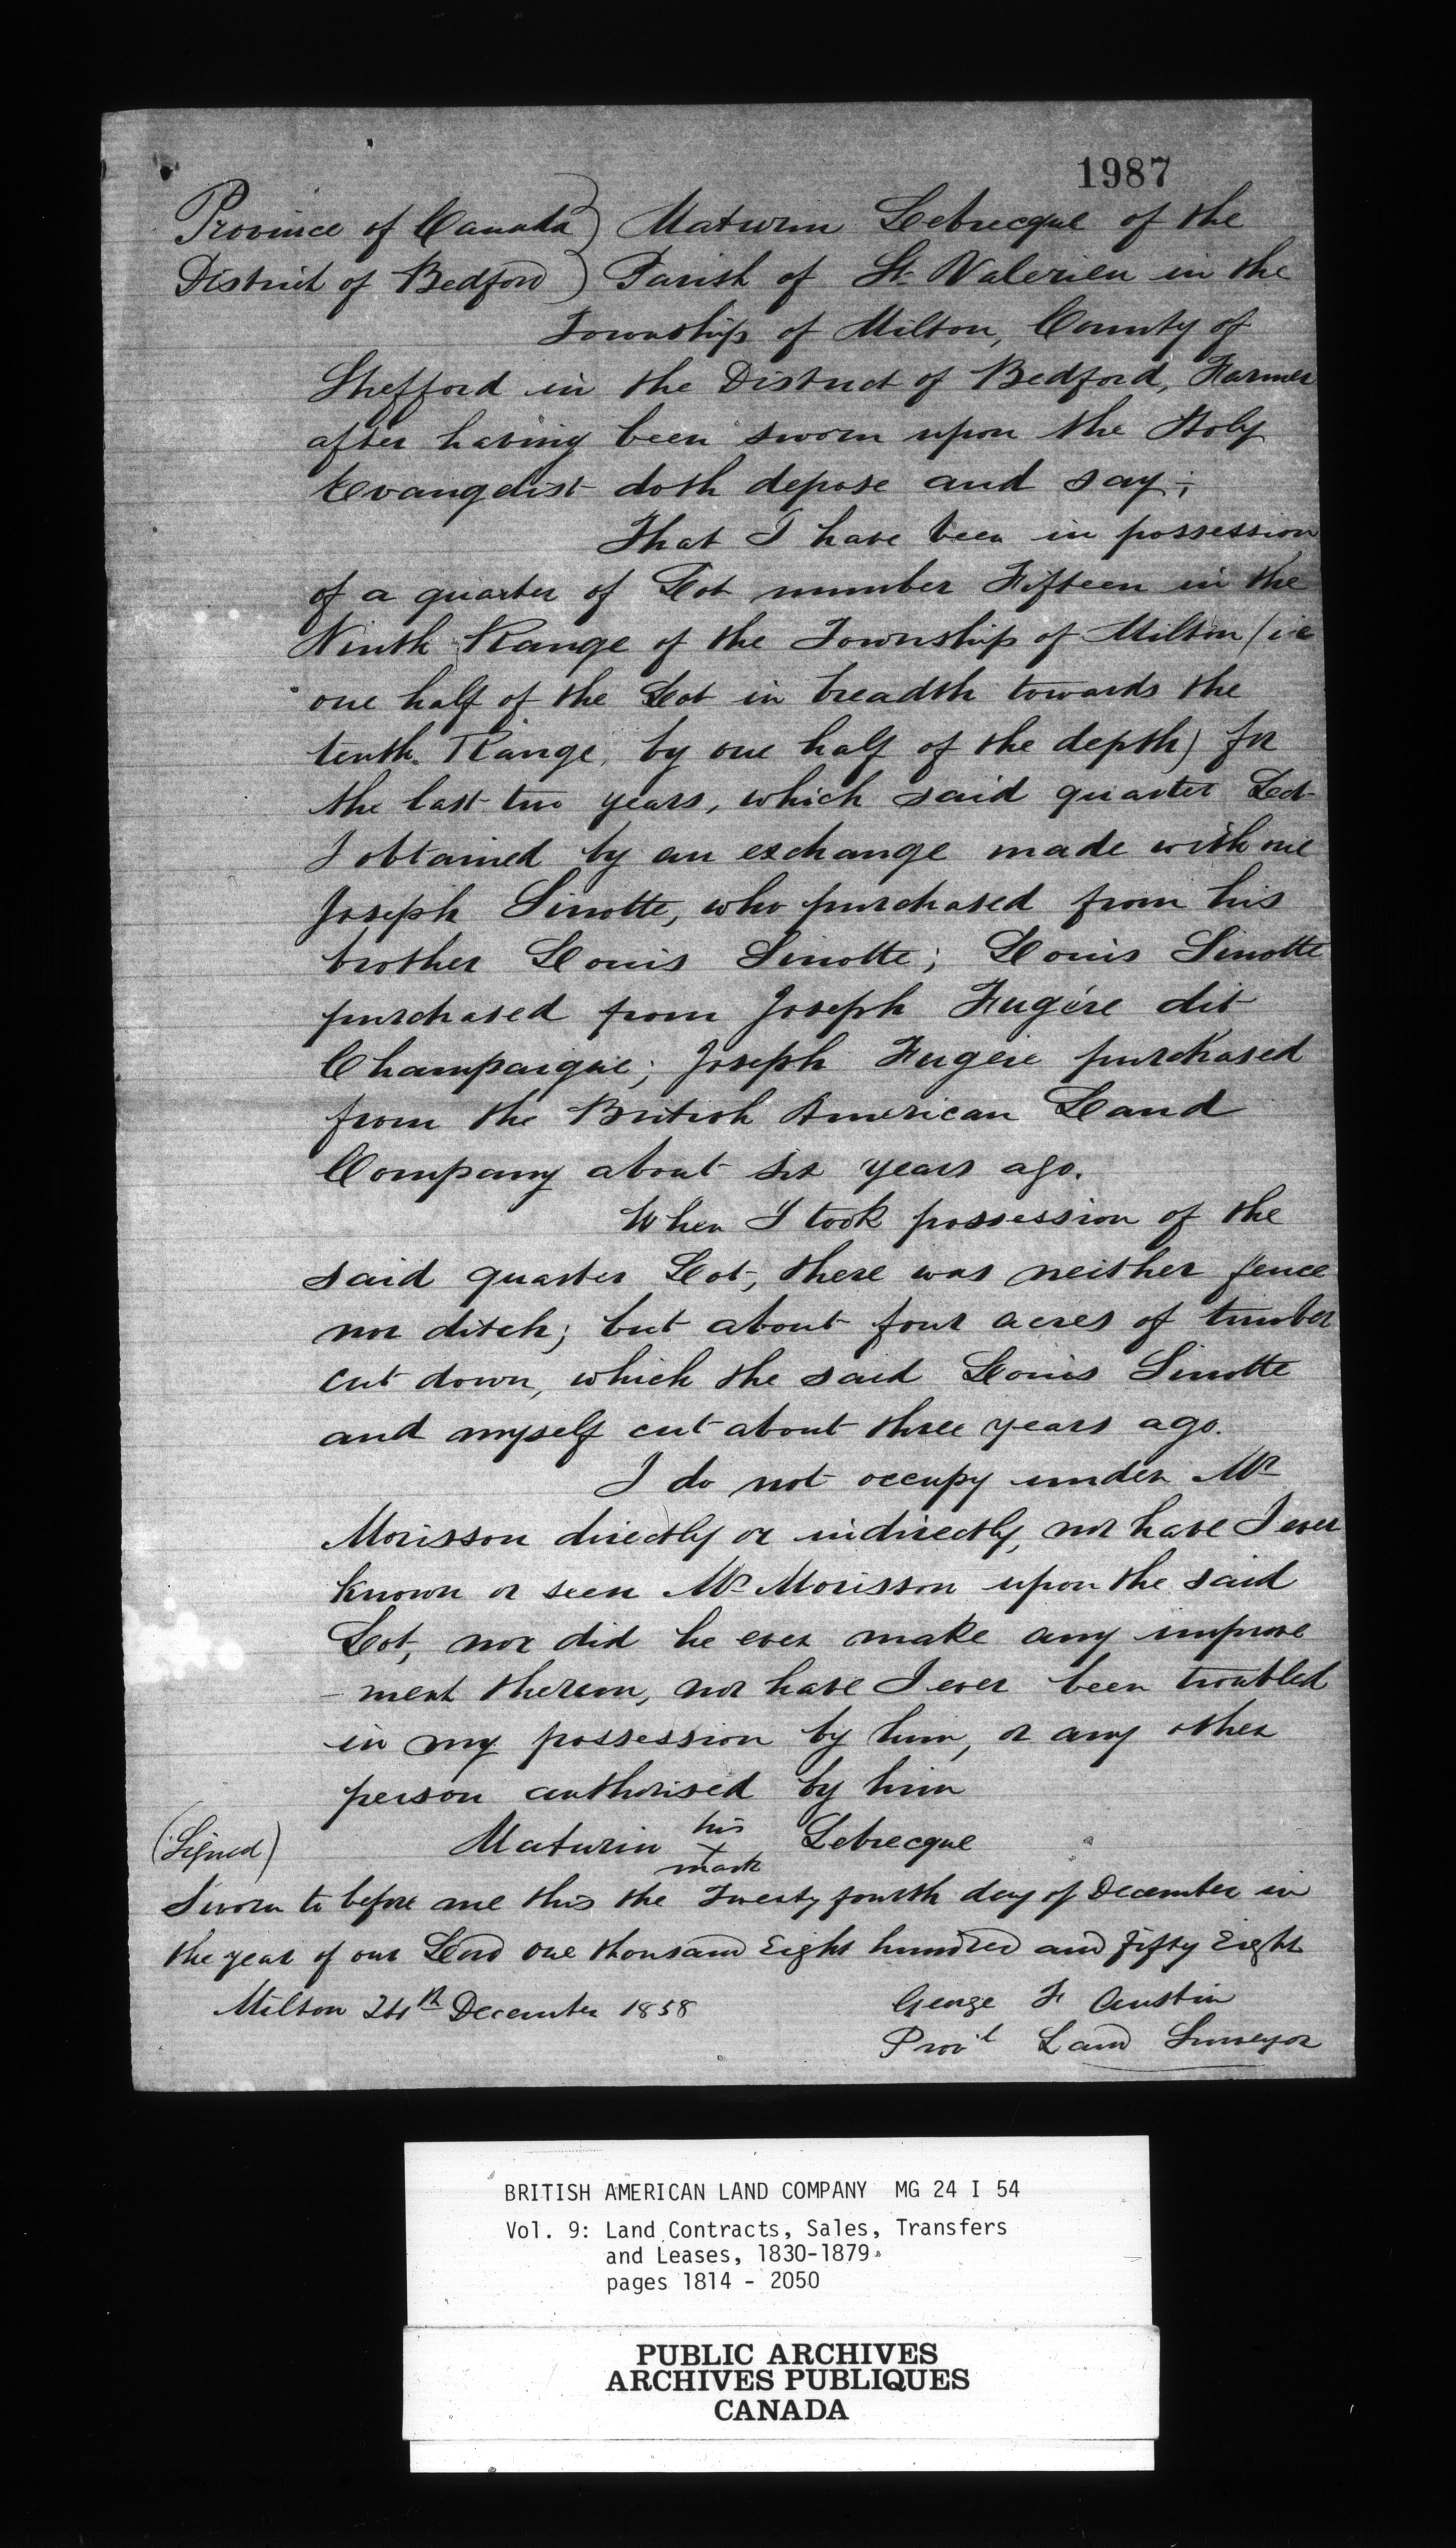 1987
Province of Canada ) Maturin Lebrecque of the
District of Bedford ) Parish of St. Valerien in the
Township of Milton, County of
Shefford in the District of Bedford, Farmer
after having been sworn upon the Holy
Evangelist doth depose and say;
That I have been in possession
of a quarter of Lot number Fifteen in the
Ninth Range of the Township of Milton (i.e
one half of the Lot in breadth towards the
tenth Range, by one half of the depth) for
the last two years, which said quarter Lot
I obtained by an exchange made with one
Joseph Sinotte, who purchased from his
brother Louis Sinotte; Louis Sinotte
purchased from Joseph Fugére dit
Champaigne; Joseph Fugére purchased
from the British American Land
Company about six years ago.
When I took possession of the
said quarter Lot, there was neither fence
nor ditch; but about four acres of timber
cut down, which the said Louis Sinotte
and myself cut about three years ago.
I do not occupy under Mr
Morisson directly or indirectly, nor have I ever
known or seen Mr Morisson upon the said
Lot, nor did he ever make any improve
-ment thereon, nor have I ever been troubled
in my possession by him, or any other
person authorised by him
(Signed) Maturin his x mark Lebrecque
Sworn to before me this the Twenty fourth day of December in
the year of our Lord one thousand Eight hundred and fifty Eight
Milton 24th December 1858 George F Austin
Prov'l Land Surveyor
BRITISH AMERICAN LAND COMPANY MG 24 I 54
Vol. 9: Land Contracts, Sales, Transfers
and Leases, 1830-1879
pages 1814 - 2050
PUBLIC ARCHIVES
ARCHIVES PUBLIQUES
CANADA